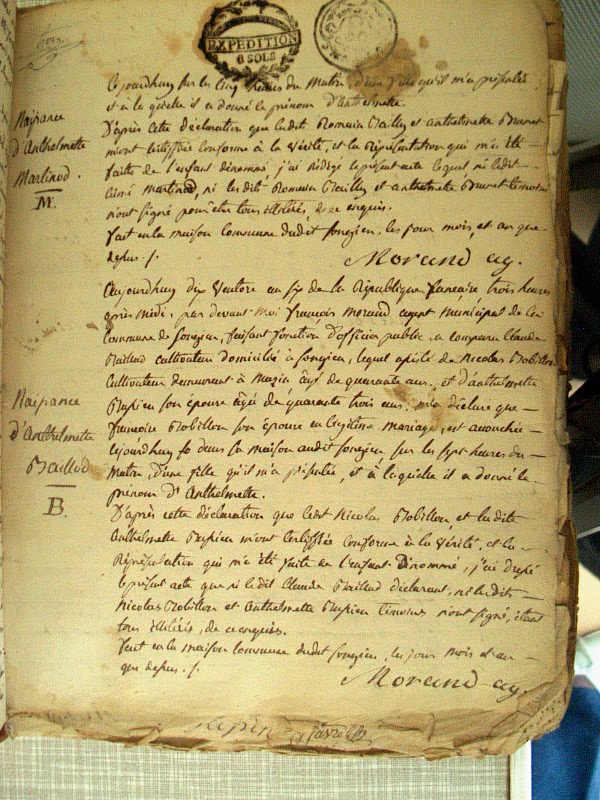 EXPEDITION
6 SOLS
trois
cejourdhuy sur les cinq heures du Matin, d'une fille qu'il m'a présentée,
et à la quelle il a donné le prénom d'Anthelmette.
Naissance
d'Anthelmette
Martinod
M.
D'après cette déclaration que ledit Romain Bailly et anthelmette Brunet
m'ont certiffiée conforme à la vérité, et la Représentation qui m'a été
faite de l'enfant dénommé, j'ai Rédigé le présent acte lequel ni ledit
aimé Martinod, ni lesdits Romain Bailly et anthelmette Brunet témoins
n'ont signé pour être tous illitérés, de ce enquis.
fait en la maison commune dudit Songieu, les jour mois, et an que
dessus ./.
Morand ag.
Aujourdhuy dix Ventose an six de la République française trois heures
après midi, par devant moi françois Morand agent municipal de la
commune de Songieu, faisant fonction d'officier public, a comparu Claude
Baillod cultivateur domicilié à Songieu, lequel assisté de Nicolas Robillon
cultivateur demeurant à âgé de quarante ans, et d'anthelmette
son épouse âgée de quarante trois ans, m'a déclaré que
françoise Robillon son épouse en légitime mariage, est accouchée
cejourdhuy dans sa maison audit Songieu sur les sept heures du
Matin, d'une fille qu'il m'a présentée, et à laquelle il a donné le
prénom d'Anthelmette.
Naissance
d'Anthelmette
Baillod
B.
D'après cette déclaration que ledit Nicolas Robillon, et ladite
Anthelmette m'ont certiffiée conforme à la vérité, et la
Représentation qui m'a été faite de l'enfant Dénommé, j'ai
le présent acte que ni ledit Claude Baillod déclarant, ni ledit
Nicolas Robillon et Anthelmette témoins n'ont signé, étant
tous illitérés, de ce enquis.
fait en la maison commune dudit Songieu, les jour mois et an
que dessus ./.
Morand ag.